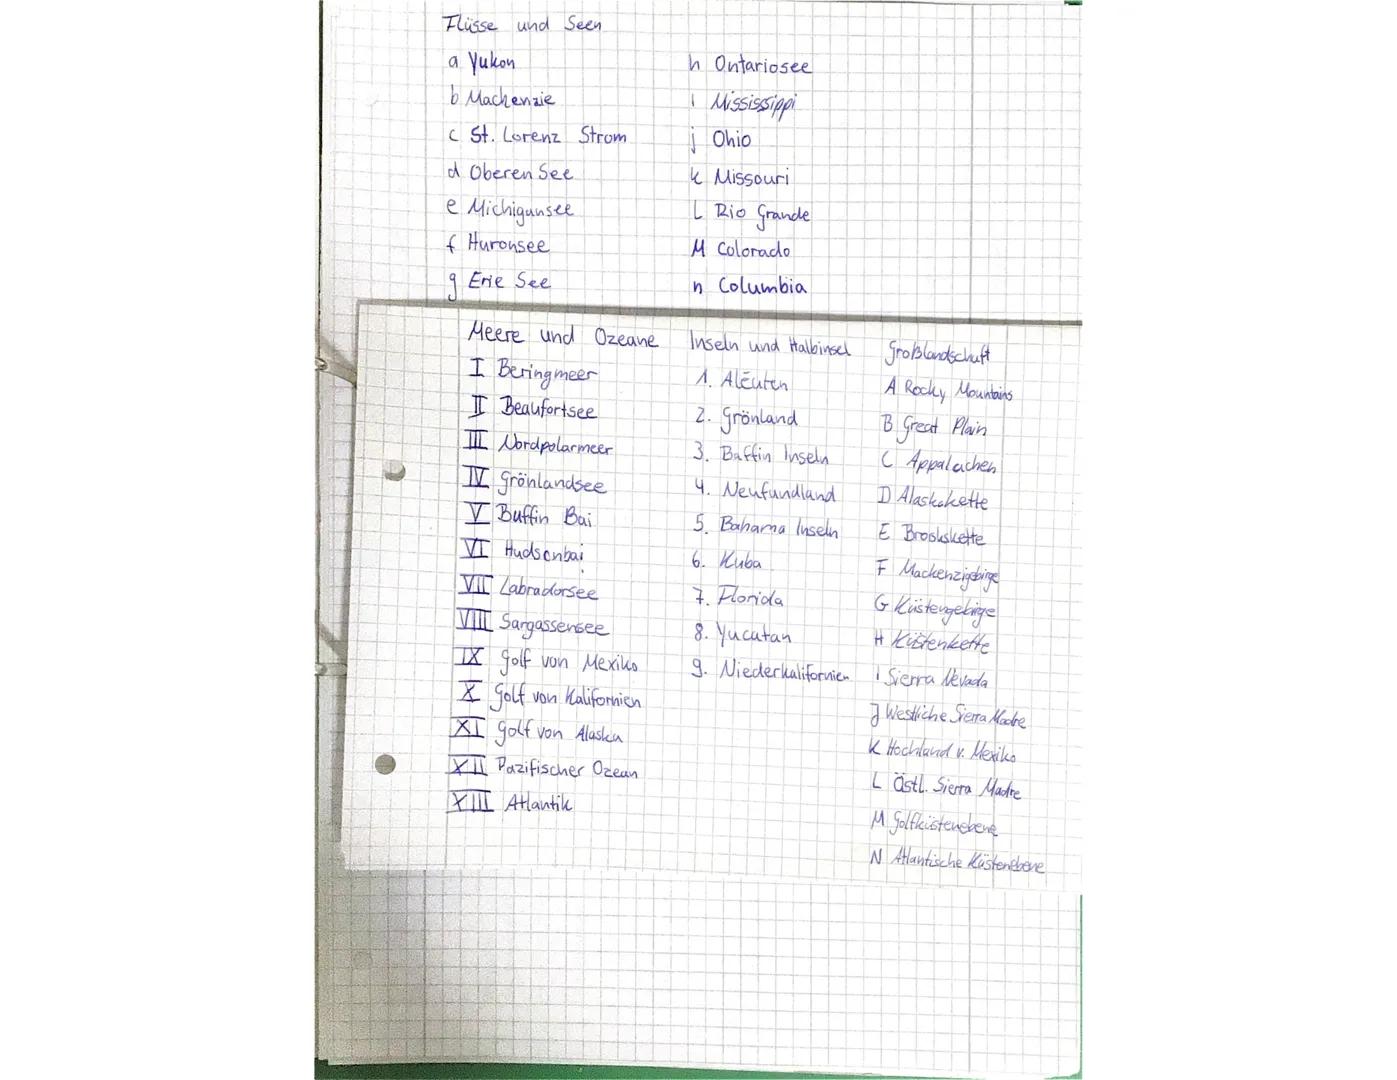 Flüsse und Seen
a Yukon
b Mackenzie
c St. Lorenz Strom
d Oberen See
e Michigansee
f Huronsee
g Erie See
h Ontariosee
i Mississippi
j Ohio
k Missouri
L Rio Grande
M Colorado
n Columbia
Meere und Ozeane
I Beringmeer
II Beaufortsee
III Nordpolarmeer
IV Grönlandsee
V Buffin Bai
VI Hudsonbai
VII Labradorsee
VIII Sargassensee
IX Golf von Mexiko
X Golf von Kalifornien
XI Golf von Alaska
XII Pazifischer Ozean
XIII Atlantik
Inseln und Halbinsel
1. Alëuten
2. Grönland
3. Baffin Inseln
4. Neufundland
5. Bahama Inseln
6. Kuba
7. Florida
8. Yucatan
9. Niederkalifornien
Großlandschaft
A Rocky Mountains
B Great Plain
C Appalachen
D Alaskakette
E Brookskette
F Mackenzigebirge
G Küstengebirge
H Küstenkette
I Sierra Nevada
J Westliche Sierra Madre
K Hochland v. Mexiko
L Östl. Sierra Madre
M Golfküstenebene
N Atlantische Küstenebene